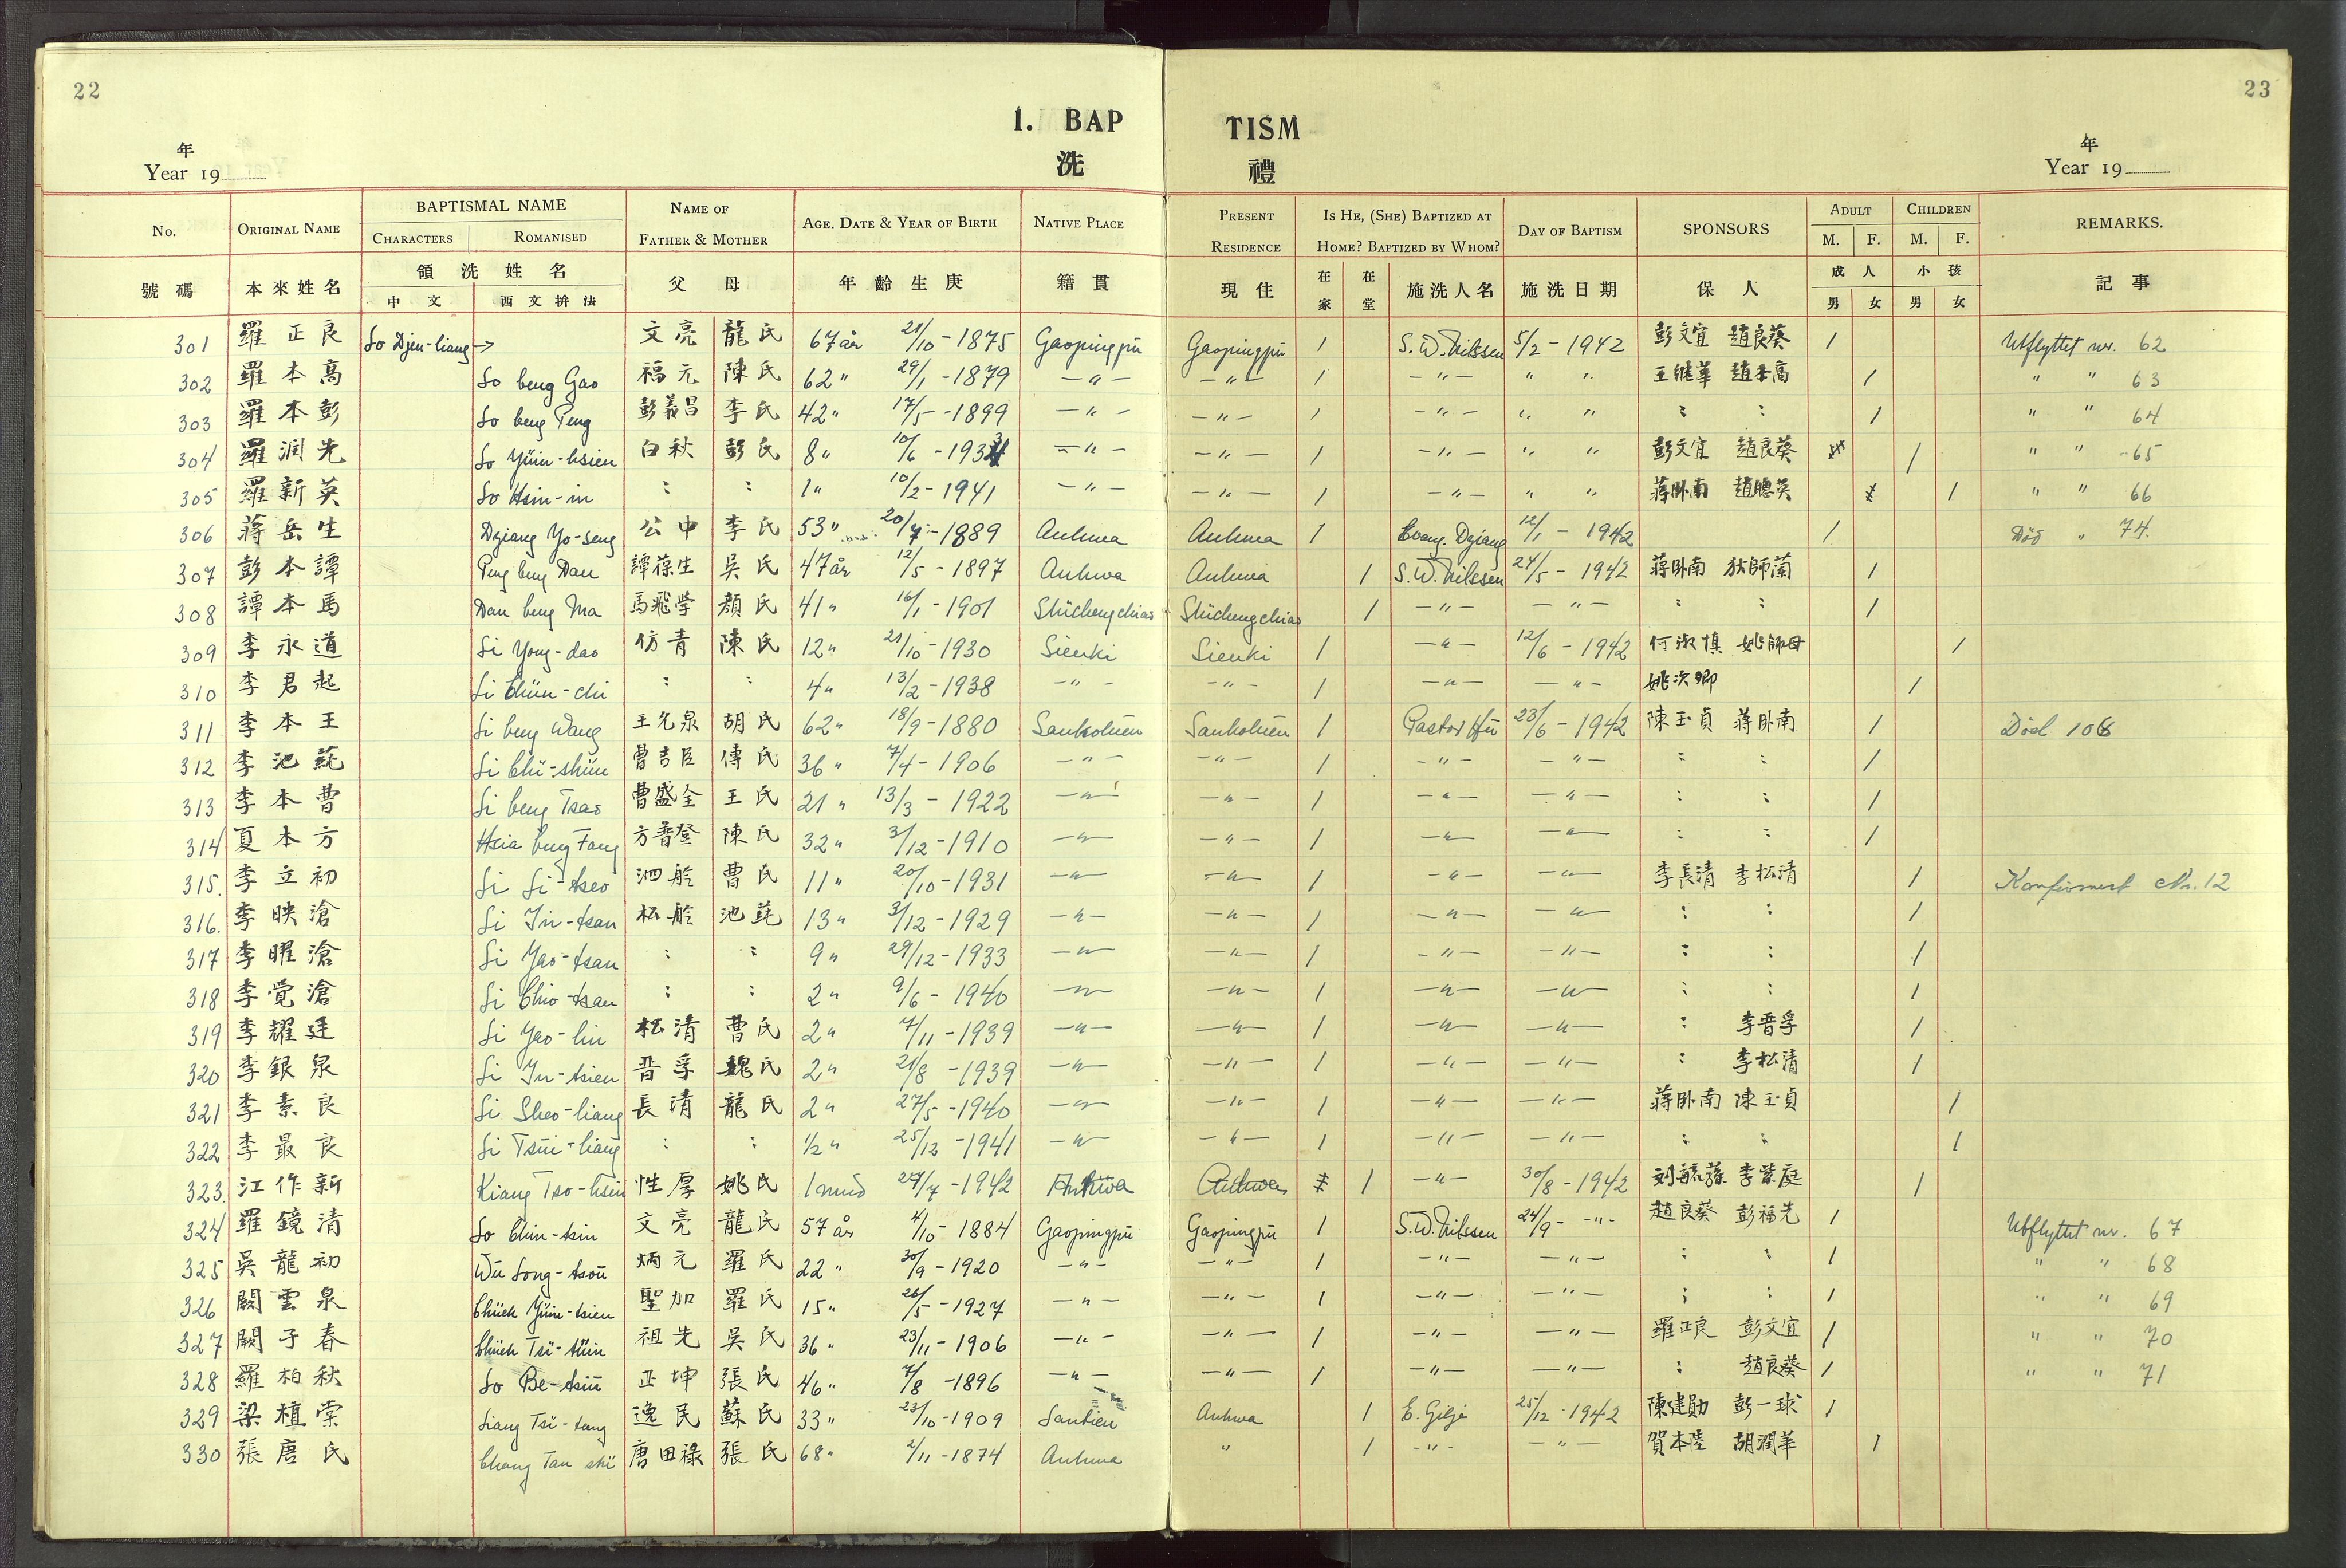 22
23
1. BAP TISM
洗 禮
年
Year 19
年
Year 19
No. ORIGINAL NAME BAPTISMAL NAME CHARACTERS ROMANISED NAME OF FATHER & MOTHER AGE. DATE & YEAR OF BIRTH NATIVE PLACE PRESENT RESIDENCE IS HE, (SHE) BAPTIZED AT HOME? BAPTIZED BY WHOM? DAY OF BAPTISM SPONSORS ADULT M. F. CHILDREN M. F. REMARKS.
號碼 本來姓名 領洗姓名 中文 西文拚法 父 母 年齡生庚 籍貫 現住 在家 在堂 施洗人名 施洗日期 保人 成人 男 女 小孩 男 女 記事
301 羅正良 Lo Djen-liang → 文亮 龍氏 67 år 21/10-1875 Gaopingpū Gaopingpū / S.W. Nilssen 5/2-1942 彭文宜 趙良葵 / Utflyttet nr. 62
302 羅本高 Lo beng Gao 福元 陳氏 62 " 29/1-1879 -"- -"- / -"- " " 王继華 趙本高 / " " 63
303 羅本彭 Lo beng Peng 彭義昌 李氏 42 " 17/5-1899 -"- -"- / -"- " " : : / " " 64
304 羅潤先 Lo Yüin-hsien 白秋 彭氏 8 " 10/6-1933 -"- -"- / -"- " " 彭文宜 趙良葵 / " " -65
305 羅新英 Lo Hsin-in : : 1 " 10/2-1941 -"- -"- / -"- " " 蒋卧南 趙聰英 / " " 66
306 蔣岳生 Dziang Yo-seng 公中 李氏 53 " 20/7-1889 Anhwa Anhwa / Evang. Dziang 12/1-1942 / Död " 74.
307 彭本譚 Peng beng Dan 譚葆生 吳氏 47 år 12/5-1897 Anhwa Anhwa / S.W. Nilssen 24/5-1942 蔣卧南 狄師蘭 /
308 譚本馬 Dan beng Ma 馬飛學 顏氏 41 " 16/1-1901 Shichengchiao Shichengchiao / -"- -"- : : /
309 李永道 Li Yong-dao 仿青 陳氏 12 " 21/10-1930 Sienki Sienki / -"- 12/6-1942 何淑慎 姚師母 /
310 李君起 Li Chün-chi : : 4 " 13/2-1938 -"- -"- / -"- -"- 姚次卿 /
311 李本王 Li beng Wang 王允泉 胡氏 62 " 18/9-1880 Sankoluen Sankoluen / Pastor Hü 23/6-1942 陳玉貞 蔣卧南 / Död 106
312 李池蒓 Li Chï-shün 曹吉臣 傅氏 36 " 7/4-1906 -"- -"- / -"- -"- : : /
313 李本曹 Li beng Tsao 曹盛全 王氏 21 " 13/3-1922 -"- -"- / -"- -"- : : /
314 夏本方 Hsia beng Fang 方香登 陳氏 32 " 3/12-1910 -"- -"- / -"- -"- : : /
315. 李立初 Li Li-tseo 泗舲 曹氏 11 " 20/10-1931 -"- -"- / -"- -"- 李長清 李松清 / Konfirmert Nr. 12
316. 李映滄 Li In-tsan 松舲 池蒓 13 " 3/12-1929 -"- -"- / -"- -"- : : /
317 李曜滄 Li Yao-tsan : : 9 " 29/12-1933 -"- -"- / -"- -"- : : /
318 李覺滄 Li Chio-tsan : : 2 " 9/6-1940 -"- -"- / -"- -"- : : /
319 李耀廷 Li Yao-lin 松清 曹氏 2 " 7/11-1939 -"- -"- / -"- -"- : 李晋孚 /
320 李銀泉 Li In-tsien 晋孚 魏氏 2 " 21/8-1939 -"- -"- / -"- -"- : 李松清 /
321 李素良 Li Sheo-liang 長清 龍氏 2 " 27/5-1940 -"- -"- / -"- -"- 蔣卧南 陳玉貞 /
322 李最良 Li Tsüi-liang : : 1/2 " 25/12-1941 -"- -"- / -"- -"- : : /
323. 江作新 Kiang Tso-hsin 性厚 姚氏 1 mnd 27/7-1942 Anhwa Anhwa / -"- 30/8-1942 李紫庭 /
324 羅鏡清 Lo Chin-tsin 文亮 龍氏 57 år 4/10-1884 Gaopingpū Gaopingpū / S.W. Nilssen 24/9- -"- 趙良葵 彭福先 / Utflyttet nr. 67
325 吳龍初 Wū Long-tsoū 炳元 羅氏 22 " 30/9-1920 -"- -"- / -"- -"- : : / " " 68
326 闕雲泉 Chüeh Yüin-tsien 聖加 羅氏 15 " 26/5-1927 -"- -"- / -"- -"- : : / " " 69
327 闕子春 Chüeh Tsï-tüin 祖先 吳氏 36 " 23/11-1906 -"- -"- / -"- -"- 羅正良 彭文宜 / " " 70
328 羅柏秋 Lo Be-tsiū 正坤 張氏 46 " 7/8-1896 -"- -"- / -"- -"- : 趙良葵 / " " 71
329 梁植棠 Liang Tsï-tang 逸民 蘇氏 33 " 23/10-1909 Lantien Anhwa / E. Gilje 25/12-1942 陳建勛 彭一球 /
330 張唐氏 Chang Tan shï 唐田祿 張氏 68 " 2/11-1874 Anhwa " / -"- -"- 賀本陸 胡潤華 /